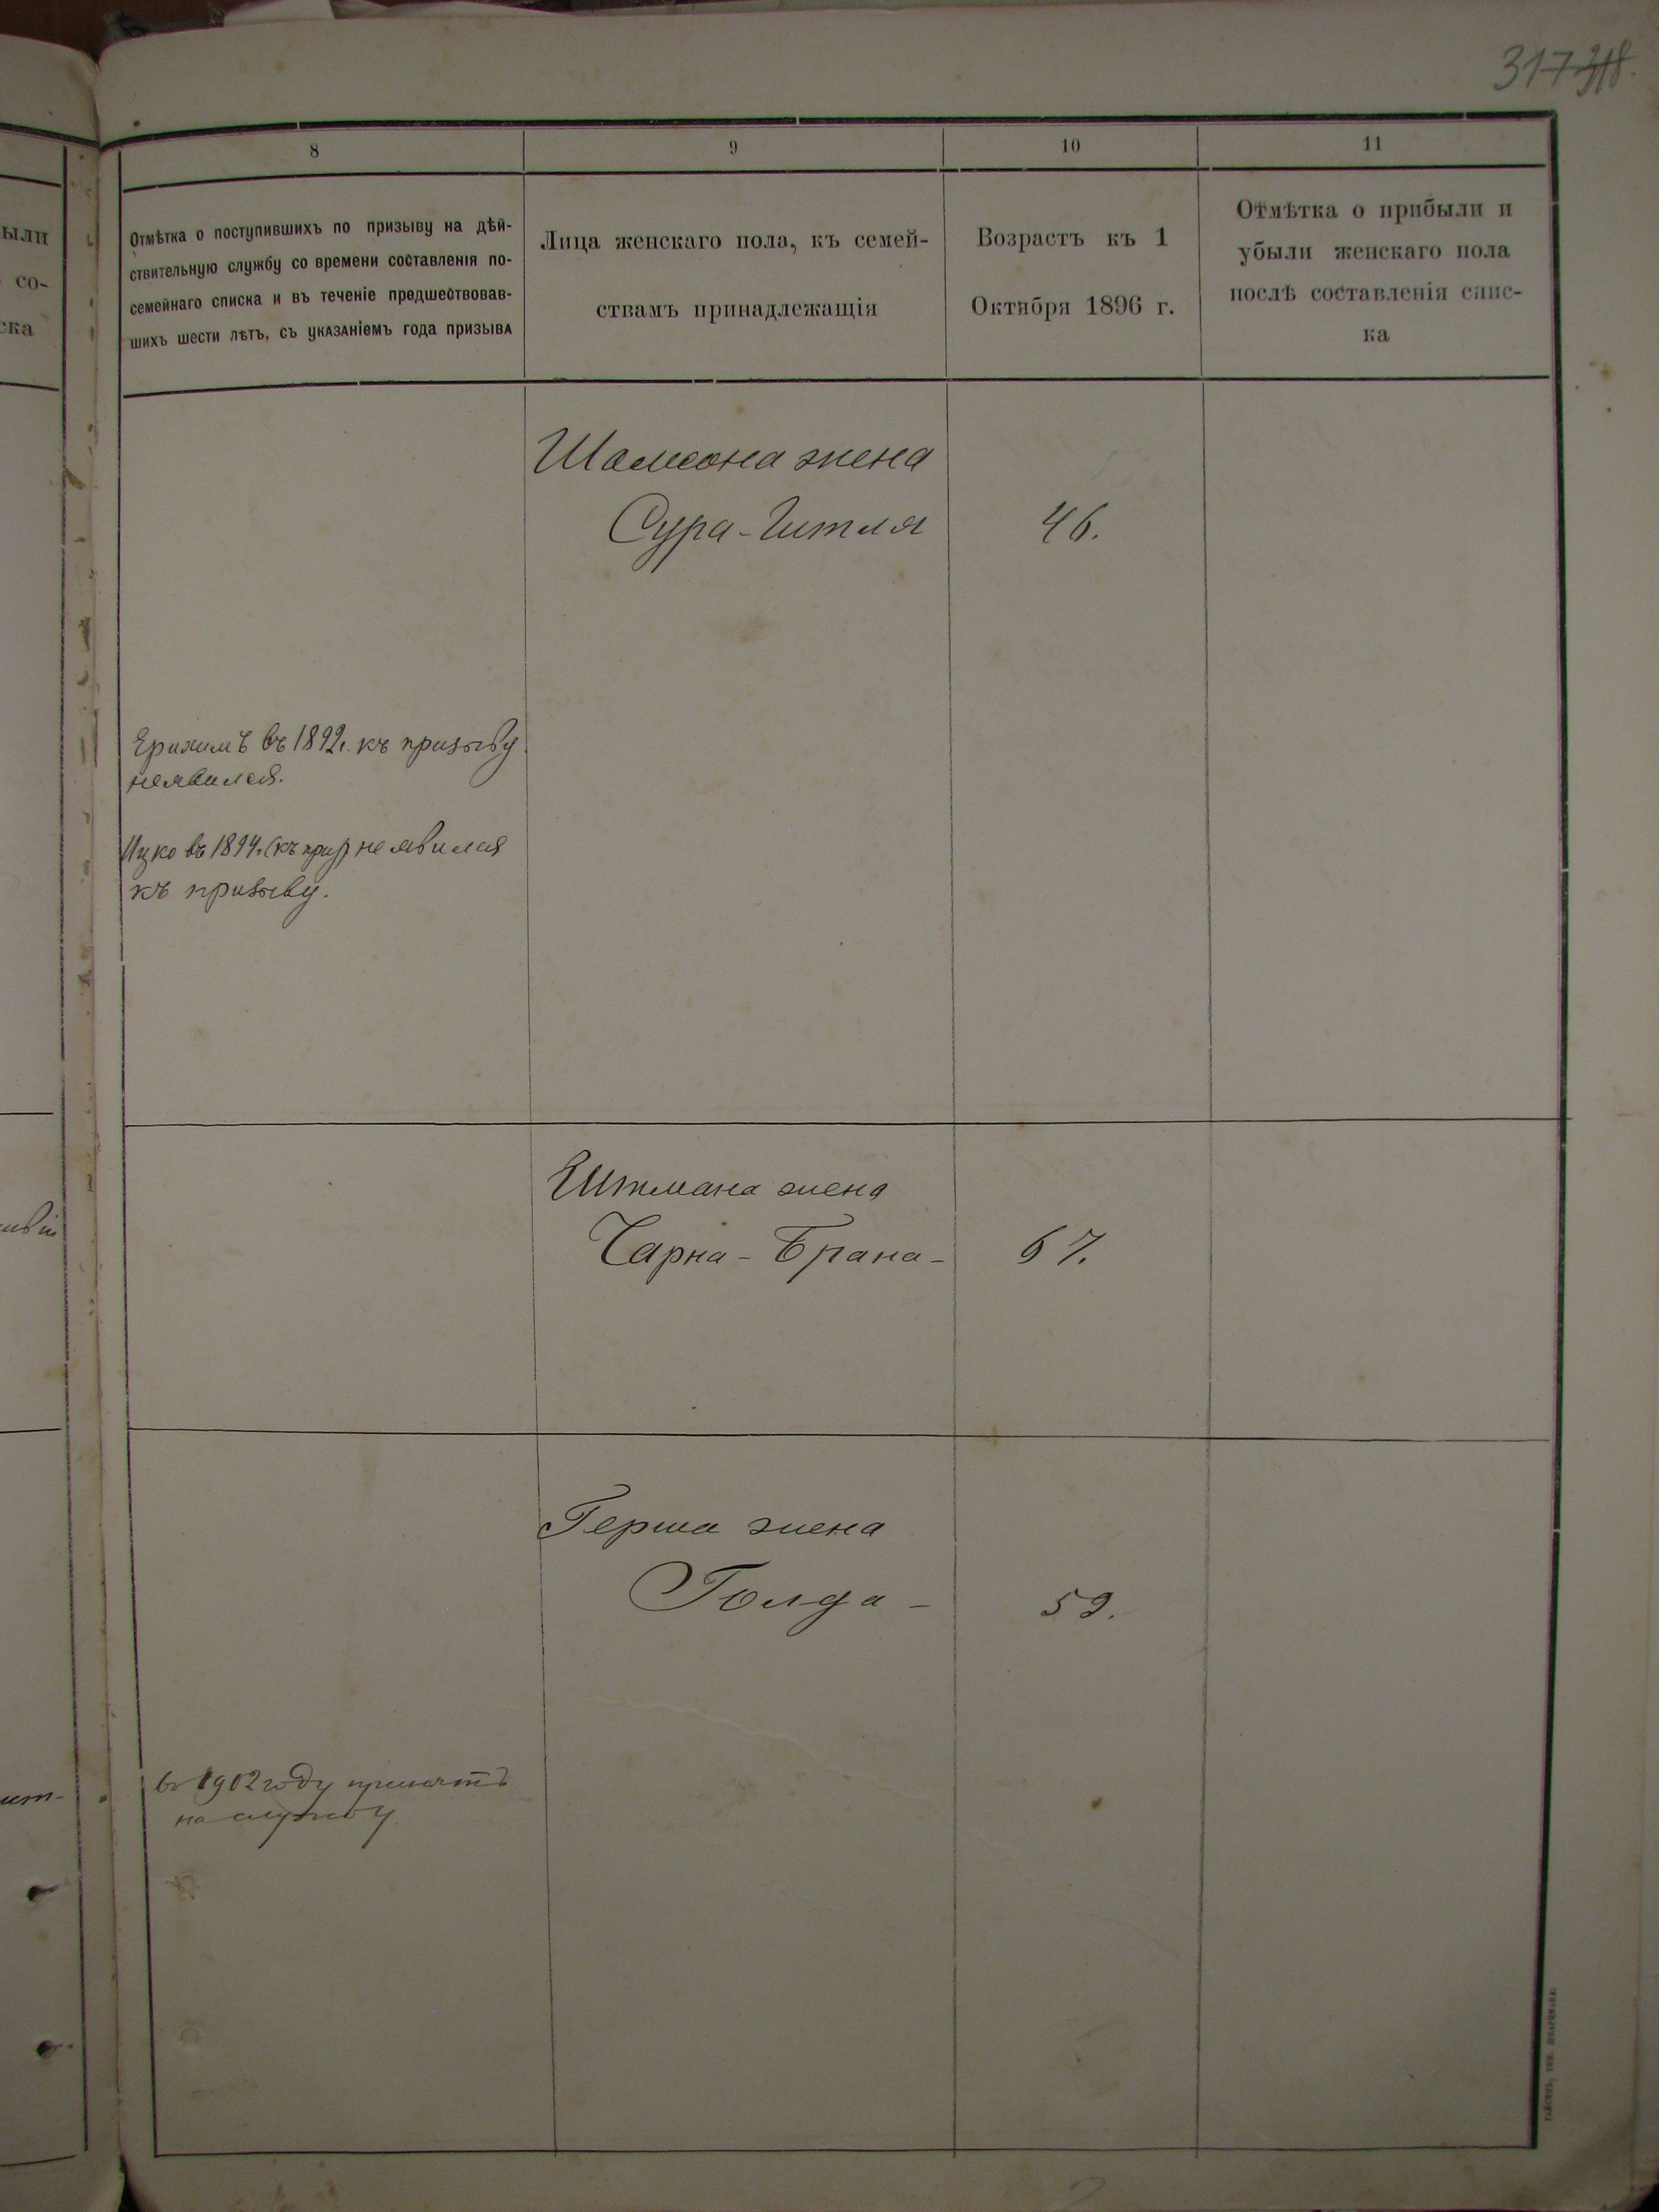 317 318.
8
9
10
11
Отмѣтка о поступившихъ по призыву на дѣй-
ствительную службу со времени составленія по-
семейнаго списка и въ теченіе предшествовав-
шихъ шести лѣтъ, съ указаніемъ года призыва
Лица женскаго пола, къ семей-
ствамъ принадлежащія
Возрастъ къ 1
Октября 1896 г.
Отмѣтка о прибыли и
убыли женскаго пола
послѣ составленія спис-
ка
ыли
со-
ска
Шамсона жена
Сура-Гитля
46.
въ 1892г. къ призыву
неявился.
Ицко въ 1894г. (къ приз) не явился
къ призыву.
жена
Чарна-Брана-
67.
Герша жена
Голда-
59.
въ 1902 году принятъ
на службу.